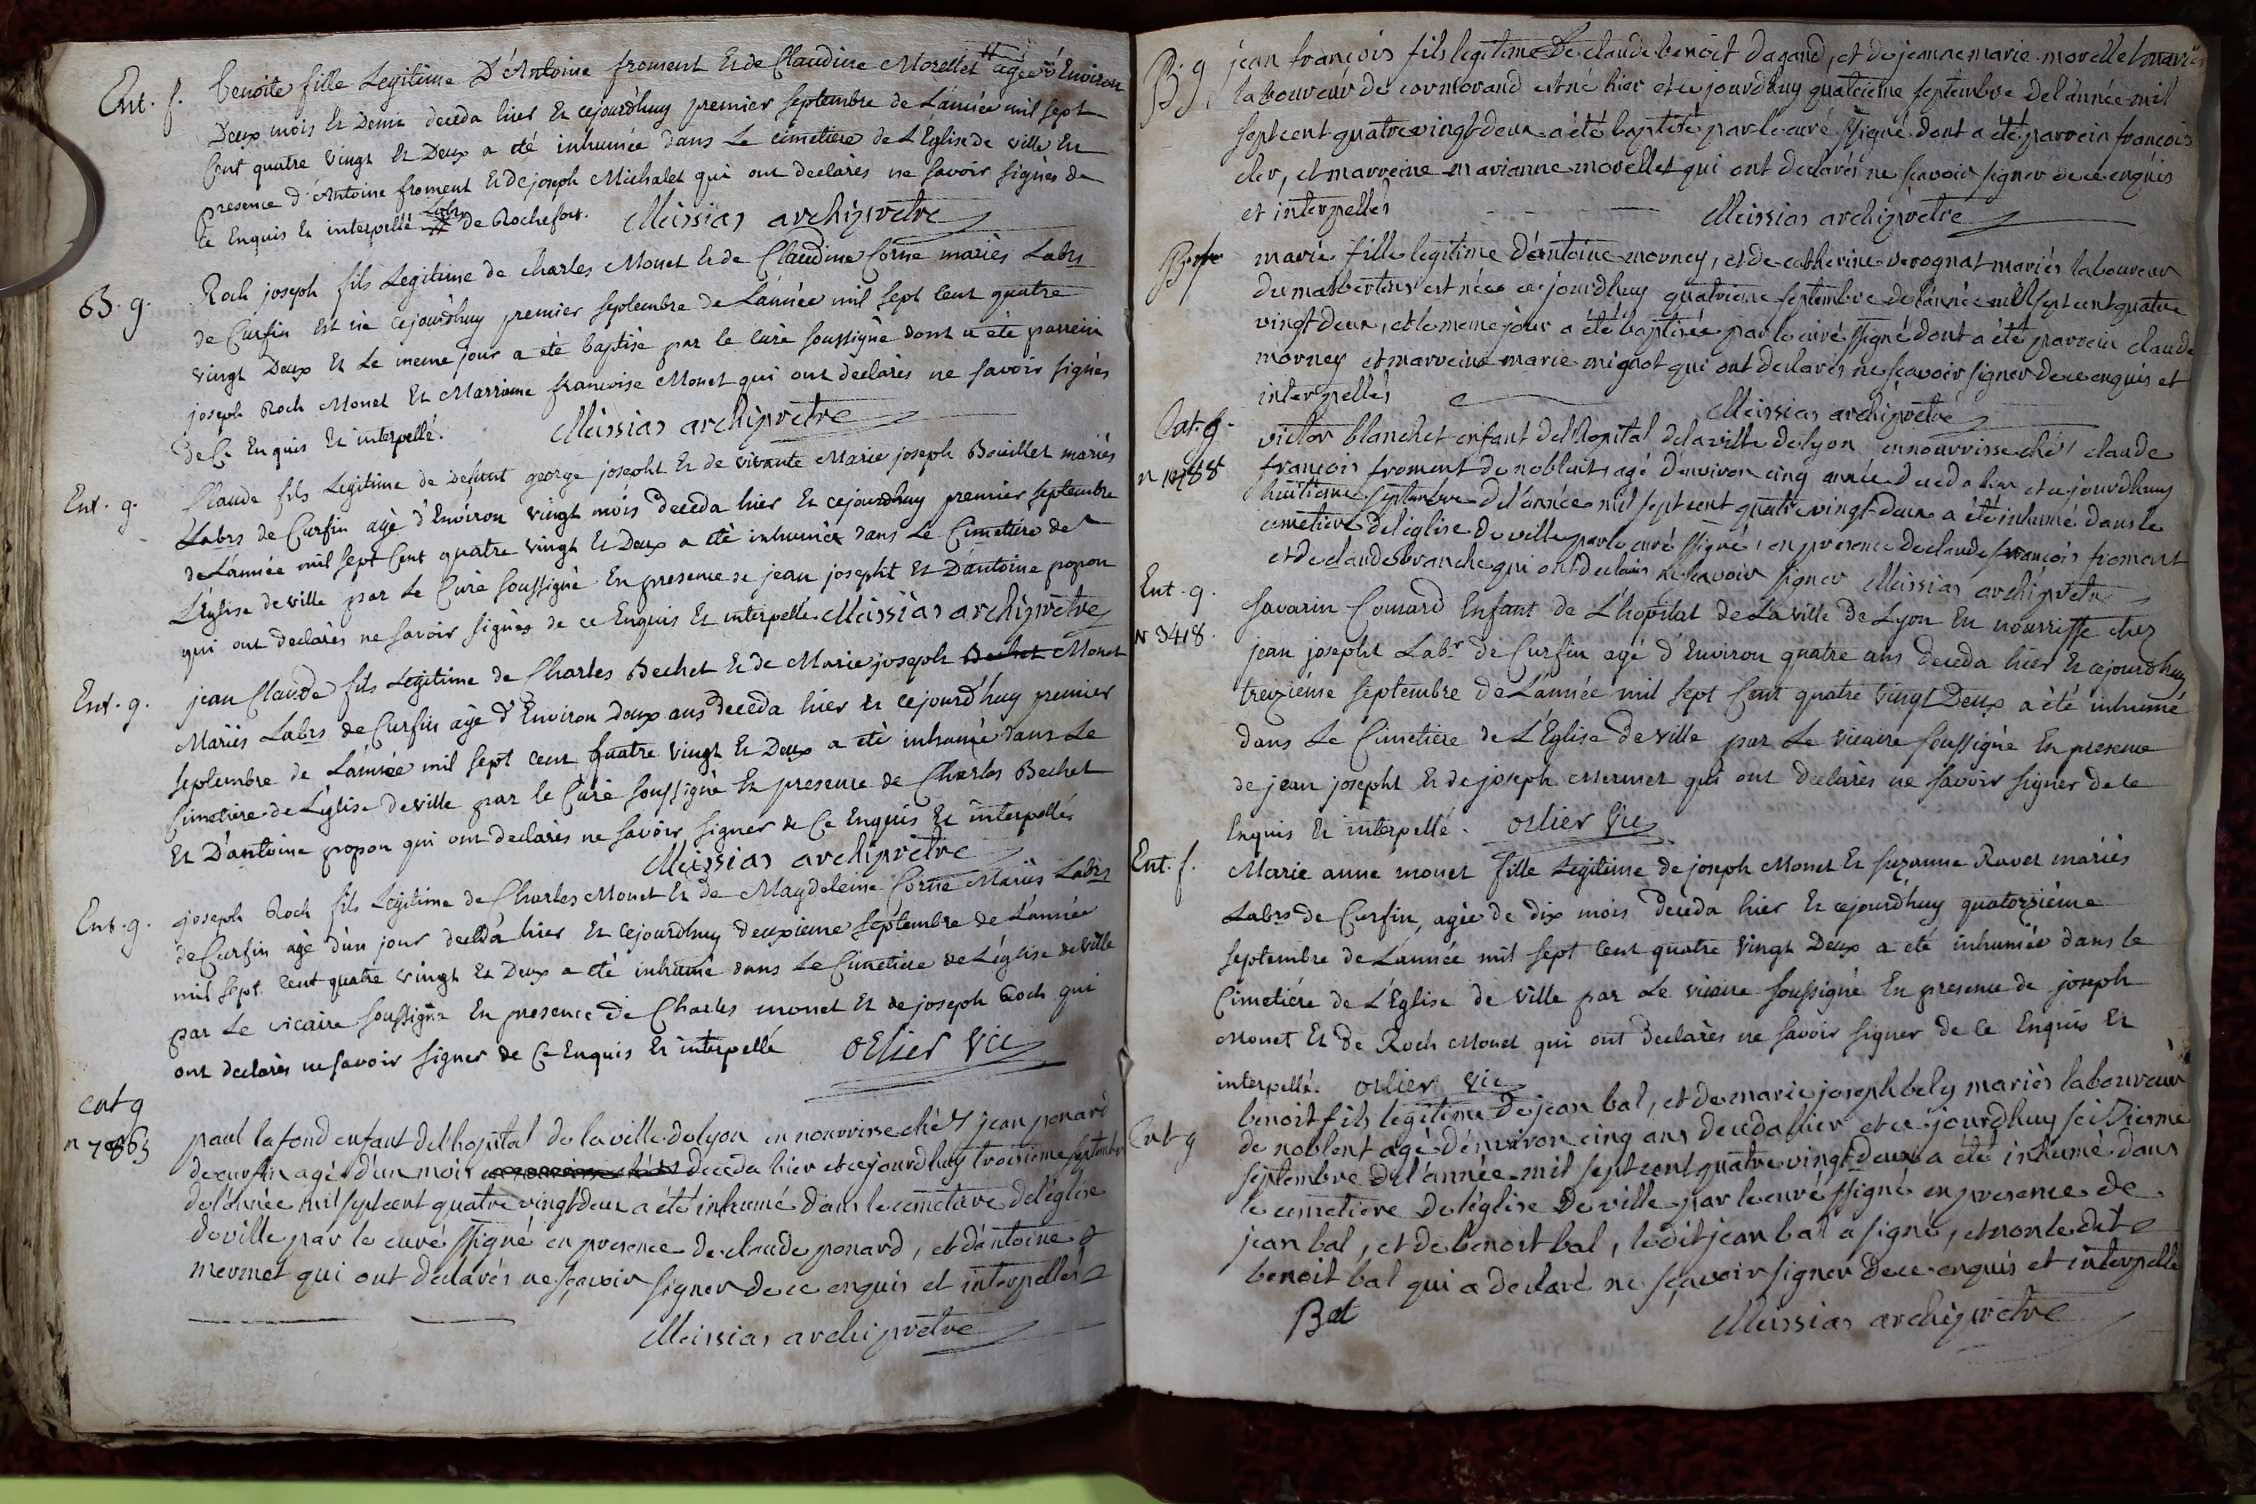 Ent. f. benoite fille Legitime D'Antoine froment Et de Claudine Morellet agée d'Environ
Deux mois Et Demi deceda hier Et cejourd'huy premier septembre de L'année mil sept
Cent quatre vingt Et Deux a été inhumée dans Le cimetiere de L'Eglise de ville En
presence d'Antoine froment Et de joseph Michalet qui ont declarés ne savoir signés de
Ce Enquis Et interpellé Labrs de Rochefort. Meissias archiprêtre
B. g. Roch joseph fils Legitime de charles Monet Et de Claudine Corne mariés Labrs
de Curfin Est né cejourd'huy premier septembre de L'année mil sept Cent quatre
vingt Deux Et Le meme jour a été baptisé par le Curé soussigné dont a été parrein
joseph Roch Monet Et Marrienne francoise Monet qui ont declarés ne savoir signés
de Ce Enquis Et interpellé. Meissias archiprêtre
Ent. g. Claude fils Legitime de Defunt george josepht Et de vivante Marie joseph Bouillet mariés
Labrs de Curfin agé d'Environ vingt mois deceda hier Et cejourdhuy premier septembre
de L'année mil sept Cent quatre vingt Et Deux a été inhumée dans Le Cimetiere de
L'Eglise de ville par Le Curé soussigné En presence de jean josepht Et D'antoine popon
qui ont declarés ne savoir signés de ce Enquis Et interpellé Meissias archiprêtre
Ent. g. jean Claude fils Legitime de Charles Bechet Et de Marie joseph Bechet Monet
Mariés Labrs de Curfin agé d'Environ Deux ans deceda hier Et cejourd'huy premier
septembre de L'année mil sept Cent quatre vingt Et Deux a été inhumé dans Le
Cimetiere de L'Eglise de ville par le Curé soussigné En presence de Charles Bechet
Et D'antoine popon qui ont declarés ne savoir signer de Ce Enquis Et interpellés
Meissias archiprêtre
Ent. g. joseph Roch fils Legitime de Charles Monet Et de Magdeleine Corne Mariés Labrs
de Curfin agé d'un jour deceda hier Et cejourdhuy deuxieme septembre de L'année
mil sept Cent quatre vingt Et Deux a été inhumé dans Le Cimetiere de L'église de ville
par Le vicaire soussigné En presence de Charles monet Et de joseph Roch qui
ont declarés ne savoir signer de Ce Enquis Et interpellé orlier vic
ent g paul la fond enfant del'hopital de la ville de lyon en nourrisse chéz jean ponard
n 7863 de curfin agé d'un mois en nourrisse chéz deceda hier et cejourdhuy troisieme septembre
de l'année mil sept cent quatre vingt deux a été inhumé dans le cemetiere del'église
de ville par le curé ssigné en presence de claude ponard, et d'antoine
mermet qui ont declarés ne sçavoir signer de ce enquis et interpellés
Meissias archiprêtre
B. g jean françois fils legitime De claude benoit dagand, et de jeanne marie morellet mariés
laboureur de cormorand est né hier et ce jourdhuy quatrieme septembre del'année mil
sept cent quatre vingt deux a été baptisé par le curé ssigné dont a été parrein francois
cler, et marreine marianne morellet qui ont declarés ne sçavoir signer de ce enquis
et interpellés Meissias archiprêtre
B. f marie fille legitime d'antoine morney, et de catherine verognat mariés laboureur
du malbertins est née ce jourdhuy quatrieme septembre del'année mil sept cent quatre
vingt deux, et le meme jour a été baptisée par le curé ssigné dont a été parrein claude
morney et marreine marie mignot qui ont declarés ne sçavoir signer de ce enquis et
interpellés Meissias archiprêtre
Ent. g. victor blanchet enfant del'hopital de la ville de lyon en nourrisse chés claude
françois froment de noblens agé d'environ cinq année deceda hier et ce jourdhuy
huitieme septembre del'année mil sept cent quatre vingt deux a été inhumé dans le
cemetiere del'église de ville par le curé ssigné en presence de claude françois froment
et de claude branche qui ont declarés ne sçavoir signer Meissias archiprêtre
Ent. g. Savarin Comard Enfant de L'hopital de La ville de Lyon En nourrisse chez
N 3418. jean josepht Labr de Curfin agé d'Environ quatre ans deceda hier Et cejourdhuy
treiziéme septembre de L'année mil sept Cent quatre vingt Deux a été inhumé
dans Le Cimetiere de L'Eglise de ville par Le vicaire soussigné En presence
de jean josepht Et de joseph mermet qui ont declarés ne savoir signer de ce
Enquis Et interpellé. orlier vic
Ent. f. Marie anne monet fille Legitime de joseph Monet Et suzanne Ravet mariés
Labrs de Curfin, agée de dix mois deceda hier Et cejourd'huy quatorziéme
septembre de L'année mil sept Cent quatre vingt Deux a été inhumée dans le
Cimetiére de L'Eglise de ville par Le vicaire soussigné En presence de joseph
Monet Et de Roch Monet qui ont declarés ne savoir signer de Ce Enquis Et
interpellé. orlier vic
Ent g benoit fils legitime de jean bal, et de marie joseph bely mariés laboureur
de noblent agé d'environ cinq ans deceda hier et ce jourdhuy seizieme
septembre del'année mil sept cent quatre vingt deux a été inhumé dans
le cemetiere de l'église de ville par le curé ssigné en presence de
jean bal, et de benoit bal, le dit jean bal a signé, et non le dit
benoit bal qui a declaré ne sçavoir signer de ce enquis et interpellé
Bal Meissias archiprêtre